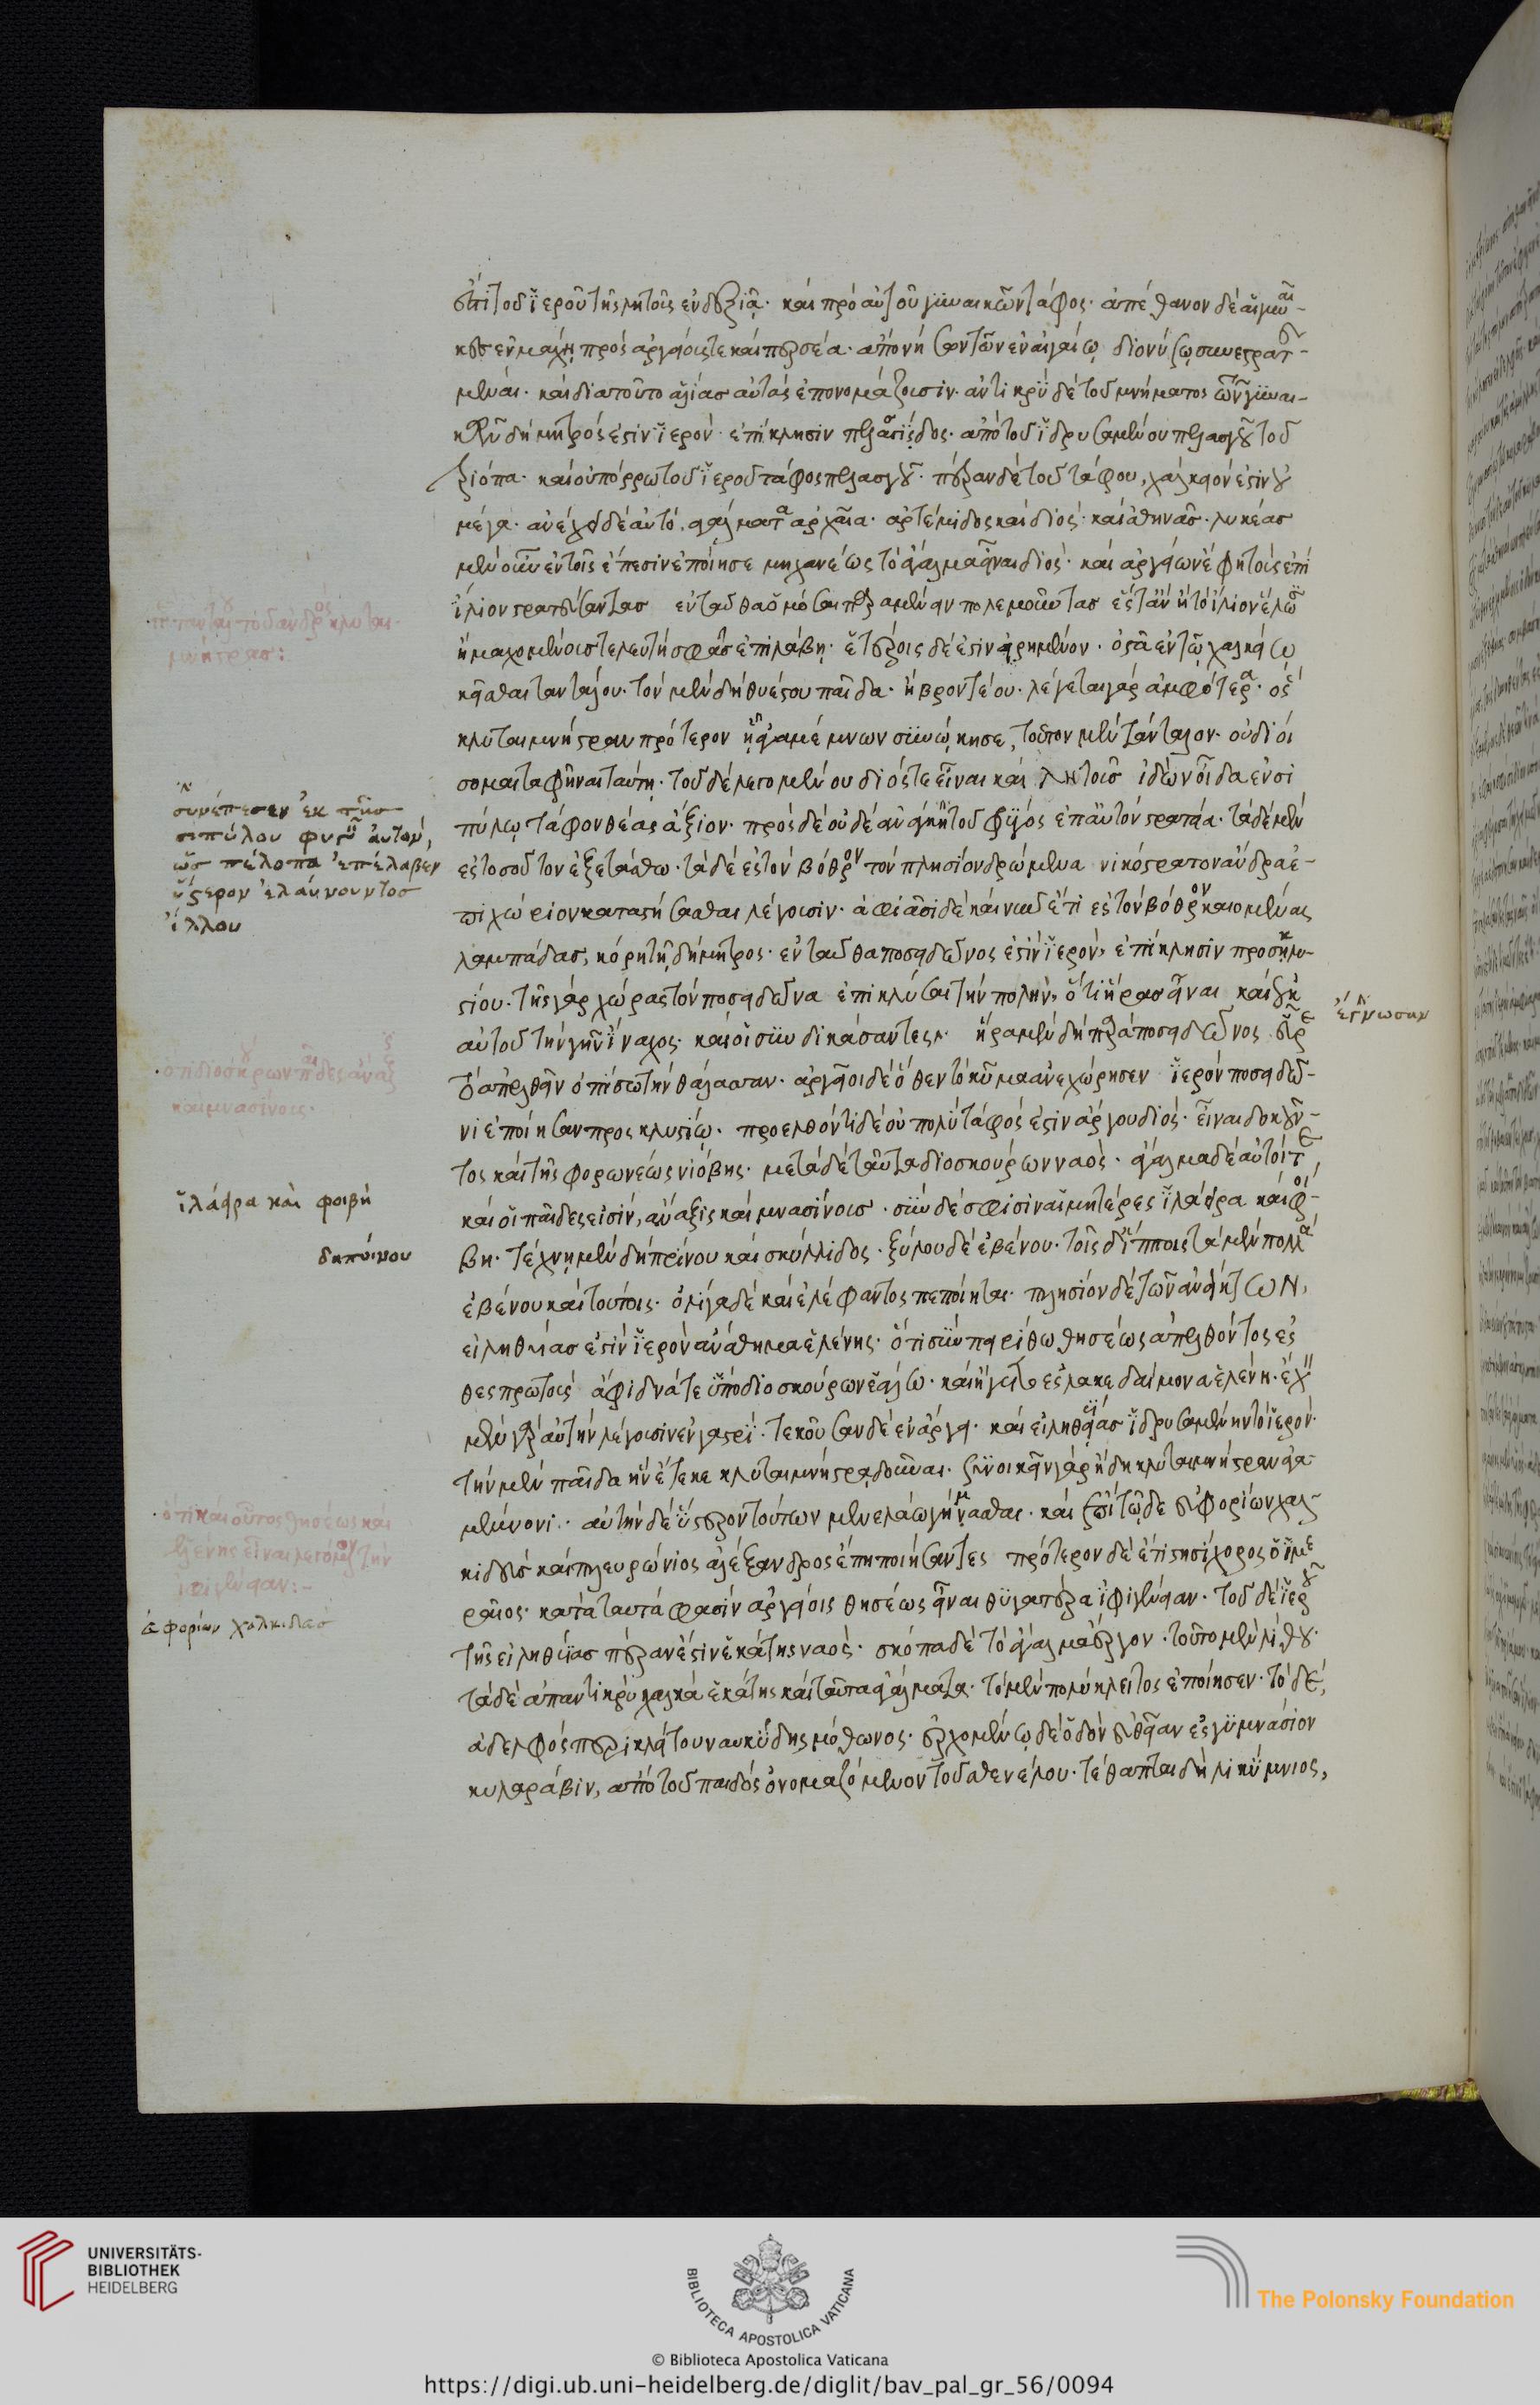 ἐπὶ τοῦ ἱεροῦ τῆς λητοῦς ἐν δεξιᾷ. καὶ πρὸ αὐτοῦ γυναικῶν τάφος. ἀπέθανον δὲ αἱ γυναῖ-
κες ἐν μάχῃ πρὸς ἀργείους τε καὶ περσέα. ἀπὸ νήσων τῶν ἐν αἰγαίῳ διονύσῳ συνεστρατευ-
μέναι. καὶ διὰ τοῦτο ἁλίας αὐτὰς ἐπονομάζουσιν. ἀντικρὺ δὲ τοῦ μνήματος τῶν γυναι-
κῶν δήμητρός ἐστιν ἱερὸν ἐπίκλησιν πελασγίδος. ἀπὸ τοῦ ἱδρυσαμένου πελασγοῦ τοῦ
τριόπα. καὶ οὐ πόρρω τοῦ ἱεροῦ τάφος πελασγοῦ. πέραν δὲ τοῦ τάφου, χαλκεῖόν ἐστιν οὐ
μέγα. ἀνέχει δὲ αὐτὸ, ἀγάλματα ἀρχαῖα. ἀρτέμιδος καὶ διὸς καὶ ἀθηνᾶς. λυκέας
μὲν οὖν ἐν τοῖς ἔπεσιν ἐποίησε μηχανέως τὸ ἄγαλμα εἶναι διός. καὶ ἀργείων ἔφη τοὺς ἐπὶ
ἴλιον στρατεύσαντας ἐνταῦθα ὀμόσαι παραμένειν πολεμοῦντας ἔστ' ἂν ἢ τὸ ἴλιον ἕλωσιν
ἢ μαχομένους τελευτὴ σφᾶς ἐπιλάβῃ. ἑτέροις δέ ἐστιν εἰρημένον. ὀστᾶ ἐν τῷ χαλκείῳ
κεῖσθαι ταντάλου. τὸν μὲν δὴ θυέστου παῖδα. ἢ βροντέου. λέγεται γὰρ ἀμφότερα. ὃς
κλυταιμνήστραν πρότερον ἢ ἀγαμέμνων συνῴκησε, τοῦτον μὲν τάνταλον. οὐ διοί-
σομαι ταφῆναι ταύτῃ. τοῦ δὲ λεγομένου διός τε εἶναι καὶ πλουτοῦς ἰδὼν οἶδα ἐν σι
πύλῳ τάφον θέας ἄξιον. πρὸς δὲ οὐδὲ ἀνάγκη τοῦ φυγὸς ἐπ' αὐτὸν στρατεία. τάδε μὲν
ἐς τοσοῦτον ἐξετάσθω. τὰ δὲ ἐς τὸν βόθρον τὸν πλησίον δρώμενα νικόστρατον ἄνδρα ἐ-
πιχώριον καταστήσασθαι λέγουσιν. ἀφιᾶσι δὲ καὶ νῦν ἔτι ἐς τὸν βόθρον καιομένας
λαμπάδας, κόρῃ τῇ δήμητρος. ἐνταῦθα ποσειδῶνός ἐστιν ἱερὸν, ἐπίκλησιν προσκλυ-
στίου. τῆς γὰρ χώρας τὸν ποσειδῶνα ἐπικλύσαι τὴν πολλὴν, ὅτι ἥρας εἶναι καὶ οὐκ
αὐτοῦ τὴν γῆν ἴναχος. καὶ οἱ συνδικάσαντες. ἥρα μὲν δὴ παρὰ ποσειδῶνος εὕρε
τὸ ἀπελθεῖν ὀπίσω τὴν θάλασσαν. ἀργεῖοι δὲ ὅθεν τὸ κῦμα ἀνεχώρησεν ἱερὸν ποσειδῶ-
νι ἐποίησαν προσκλυστίῳ. προελθόντι δὲ οὐ πολὺ τάφος ἐστὶν ἄργου διός. εἶναι δοκοῦν-
τος καὶ τῆς φορωνέως νιόβης. μετὰ δὲ ταῦτα διοσκούρων ναός. ἄγαλμα δὲ αὐτοί τε,
καὶ οἱ παῖδές εἰσιν, ἄναξις καὶ μνασίνους. σὺν δέ σφίσιν αἱ μητέρες ἱλάειρα καὶ φοί-
βη. τέχνη μὲν διποίνου καὶ σκύλλιδος. ξύλου δὲ ἐβένου. τοῖς δ' ἵπποις τὰ μὲν πολλὰ
ἐβένου καὶ τούτοις. ὀλίγα δὲ καὶ ἐλέφαντος πεποίηται. πλησίον δὲ τῶν ἀνάκτων,
εἰληθυίας ἐστὶν ἱερὸν ἀνάθημα ἑλένης. ὅτι σὺν πειρίθῳ θησέως ἀπελθόντος ἐς
θεσπρωτοὺς ἄφιδνά τε ὑπὸ διοσκούρων ἑάλω. καὶ ἤγετο ἐς λακεδαίμονα ἑλένη. ἔχειν
μὲν γὰρ αὐτὴν λέγουσιν ἐν γαστρί. τεκοῦσαν δὲ ἐν ἄργει. καὶ εἰληθυίας ἱδρυσαμένην τὸ ἱερόν.
τὴν μὲν παῖδα ἣν ἔτεκε κλυταιμνήστρᾳ δοῦναι. συνοικεῖν γὰρ ἤδη κλυταιμνήστραν ἀγα-
μέμνονι. αὐτὴν δὲ ὕστερον τούτων μενελάῳ γήμασθαι. καὶ ἐπὶ τῷδε εὐφορίων χαλ-
κιδεὺς καὶ πλευρώνιος ἀλέξανδρος ἔπη ποιήσαντες πρότερον δὲ ἔτι στησίχορος ὁ ἱμε
ραῖος. κατὰ ταυτά φασιν ἀργείοις θησέως εἶναι θυγατέρα ἰφιγένειαν. τοῦ δὲ ἱεροῦ
τῆς εἰληθυίας πέραν ἐστὶν ἑκάτης ναός. σκόπα δὲ τὸ ἄγαλμα ἔργον. τοῦτο μὲν λίθου.
τὰ δὲ ἀπαντικρὺ χαλκᾶ ἑκάτης καὶ ταῦτα ἀγάλματα. τὸ μὲν πολύκλειτος ἐποίησεν. τὸ δὲ,
ἀδελφὸς περικλείτου ναυκύδης μόθωνος. ἐρχομένῳ δὲ ὁδὸν εὐθεῖαν ἐς γυμνάσιον
κυλαράβιν, ἀπὸ τοῦ παιδὸς ὀνομαζόμενον τοῦ σθενέλου. τέθαπται δὴ λικύμνιος,
συνέπεσεν ἐκ τῆς
σιπύλου φυγεῖν αὐτὸν,
ὡς πέλοπα ἐπέλαβεν
ὕστερον ἐλαύνοντος
ἴλλου
ἔγνωσαν
ἱλάειρα καὶ φοιβή
διποίνου
ὅτι διοσκούρων παῖδες ἄναξις
καὶ μνασίνους.
ὅτι καὶ οὗτος θησέως καὶ
ἑλένης εἶναι λέγουσι τὴν
ἰφιγένειαν:-
εὐφορίων χαλκιδεὺς
UNIVERSITÄTS-
BIBLIOTHEK
HEIDELBERG
BIBLIOTECA APOSTOLICA VATICANA
© Biblioteca Apostolica Vaticana
The Polonsky Foundation
https://digi.ub.uni-heidelberg.de/diglit/bav_pal_gr_56/0094